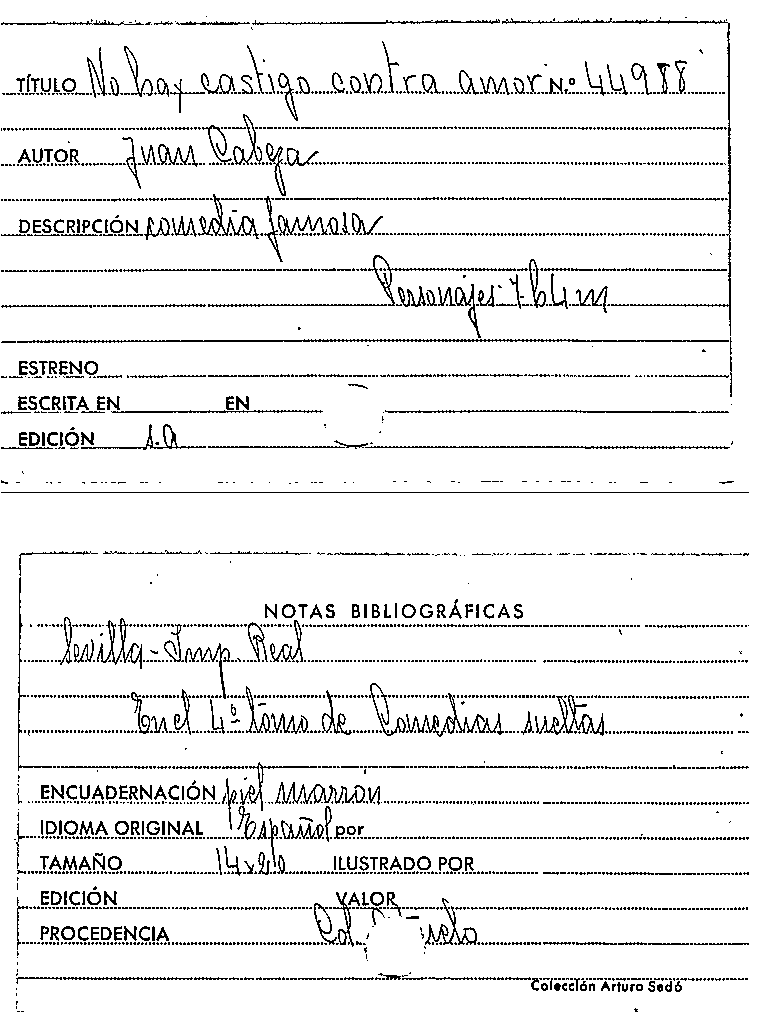 TÍTULO No hay castigo contra amor N.º 44988
AUTOR Juan Cabeza
DESCRIPCIÓN comedia famosa
Personajes: 7 h 4 m
ESTRENO
ESCRITA EN EN
EDICIÓN s.a
NOTAS BIBLIOGRÁFICAS
Sevilla - Imp. Real
En el 4º tomo de Comedias sueltas
ENCUADERNACIÓN piel marrón
IDIOMA ORIGINAL Español por
TAMAÑO 14x20 ILUSTRADO POR
EDICIÓN VALOR
PROCEDENCIA Col.
Colección Arturo Sedó